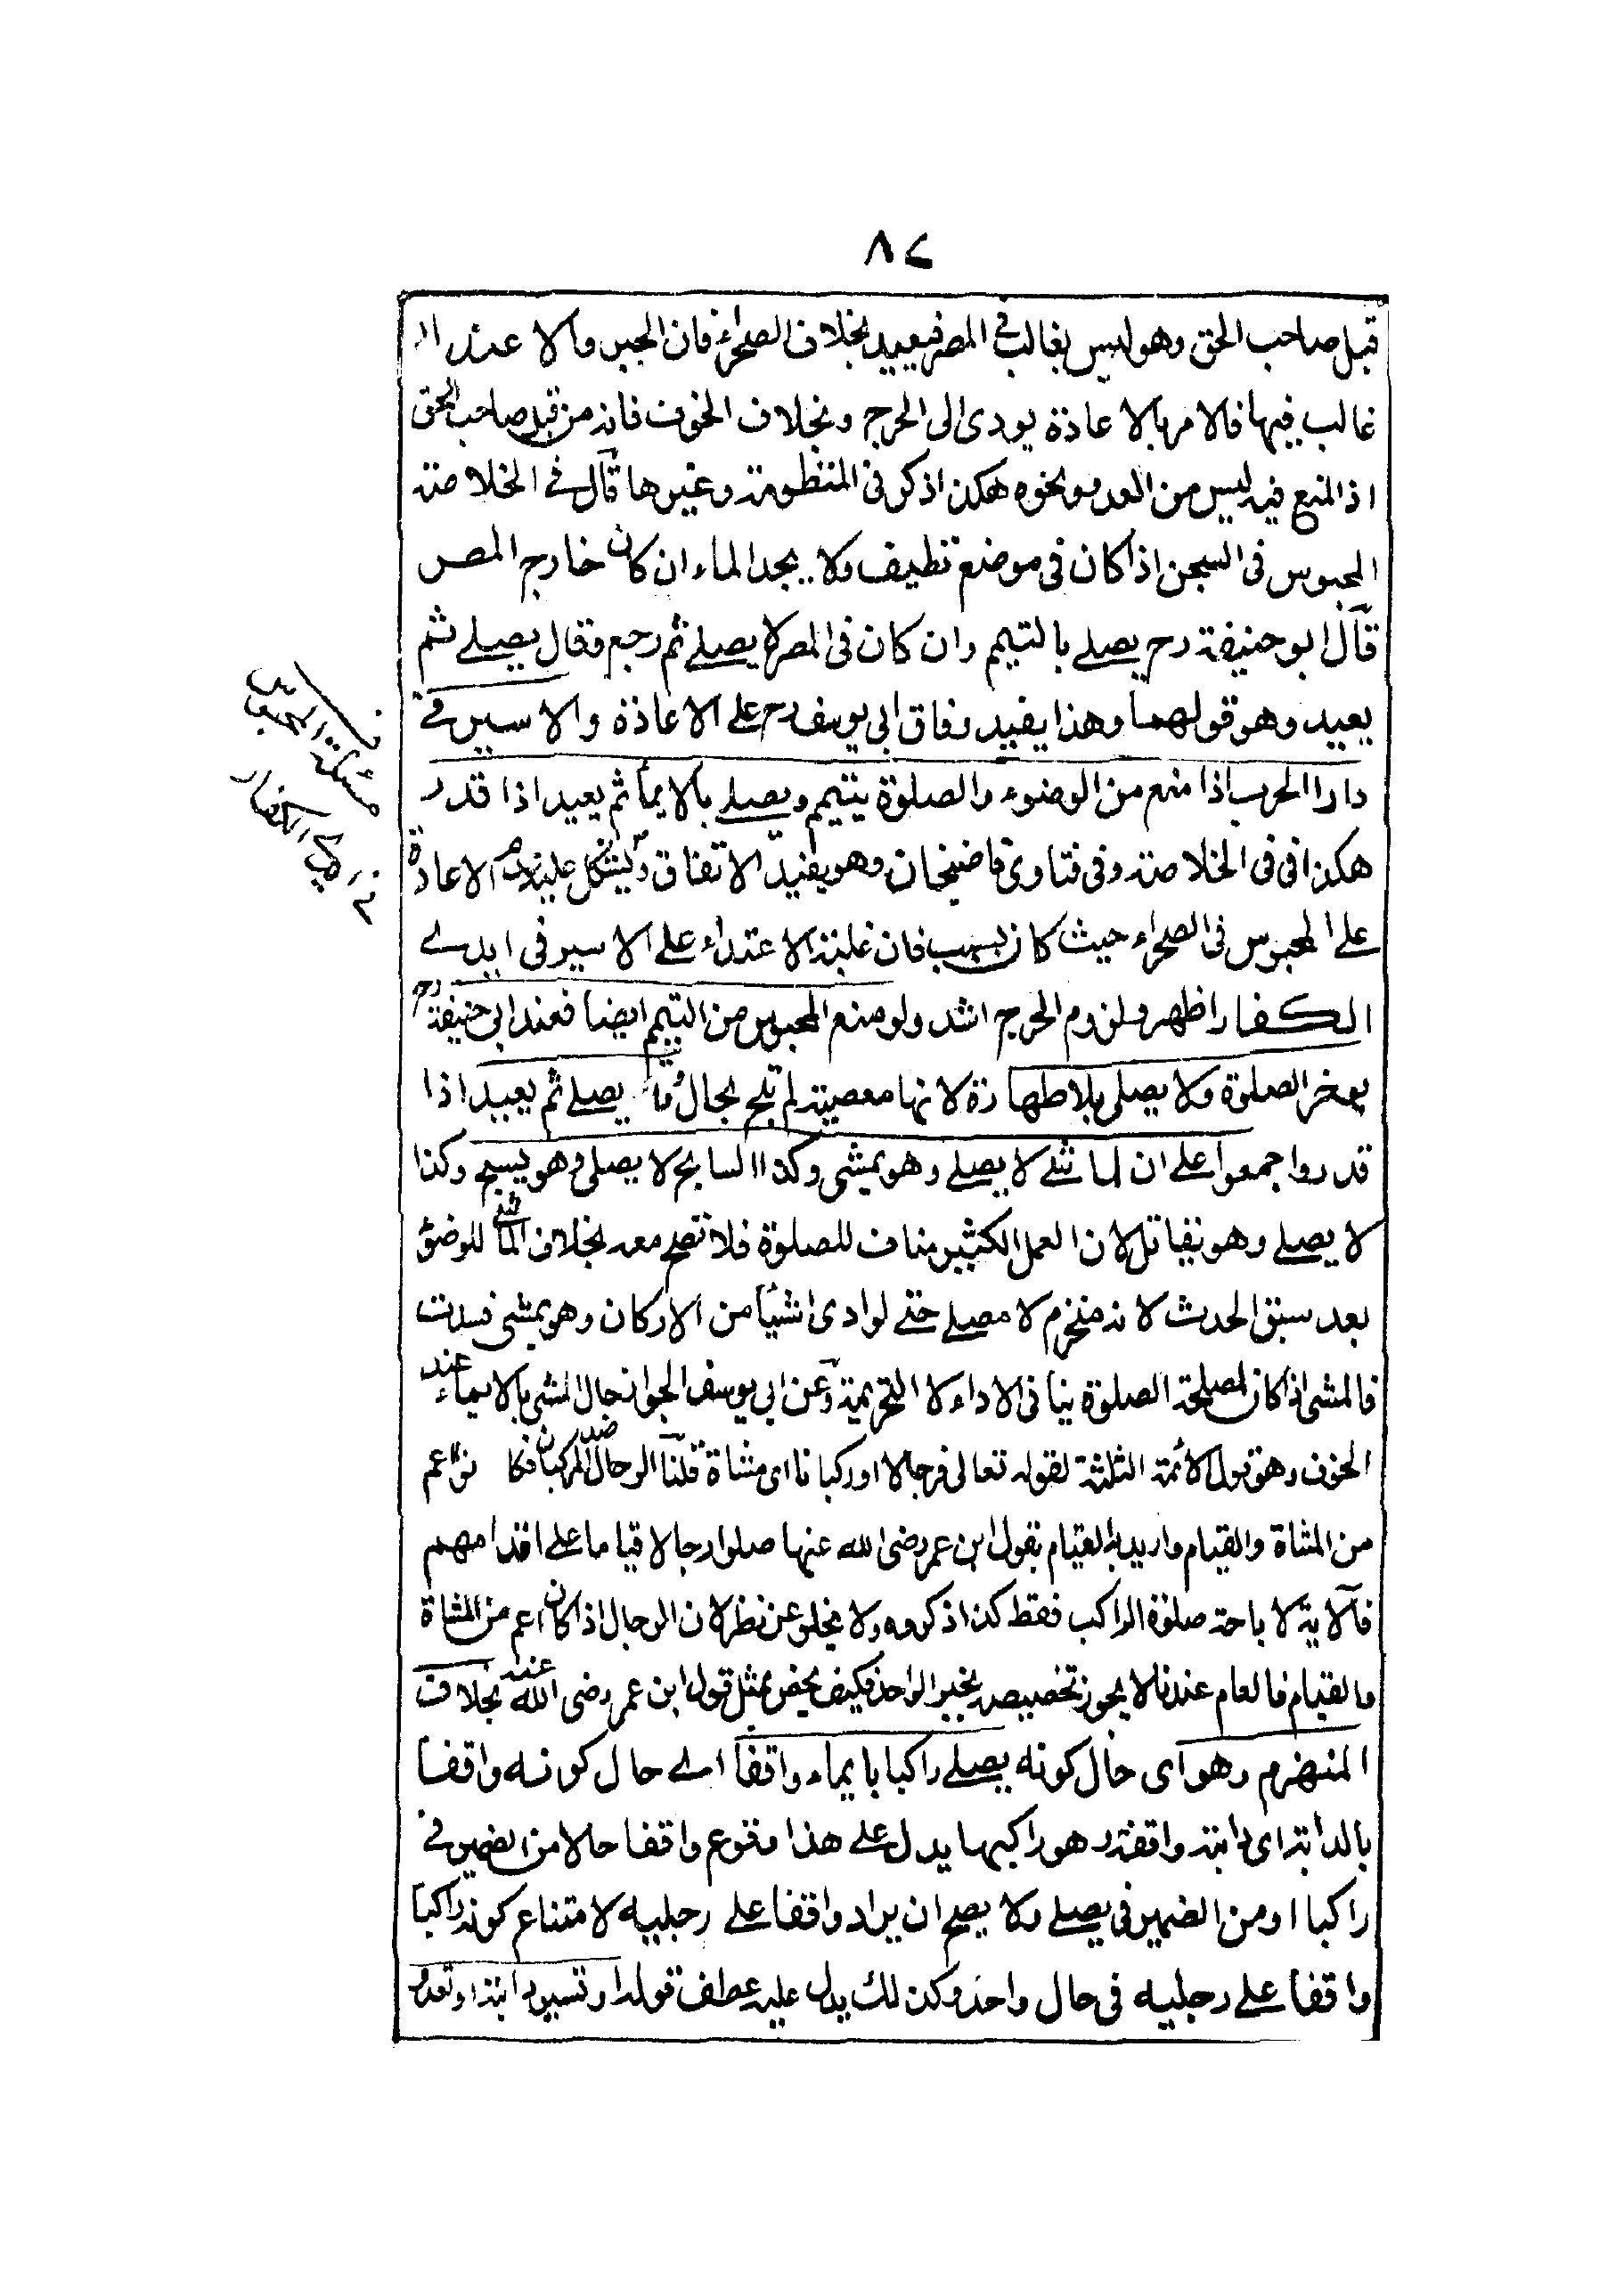 ٨٧
قبل صاحب الحق وهو ليس بغالب في المصر فيعيد بخلاف الصحراء فان الحبس والاعتداء
غالب فيها فالامر بالاعادة يودى الى الحرج وبخلاف الخوف فانه من قبل صاحب الحق
اذ المنع فيه ليس من العدو ونحوه هكذا ذكر فى المنظومة وغيرها قال فى الخلاصة
المحبوس فى السجن اذا كان فى موضع نظيف ولا يجد الماء ان كان خارج المصر
قال ابو حنيفة رح يصلے بالتيمم وان كان فى المصر لا يصلے ثم رجع وقال يصلے ثم
يعيد وهو قولهما وهذا يفيد وفاق ابى يوسف رح على الاعادة والاسير فے
دار الحرب اذا منع من الوضوء والصلوة يتيمم ويصلے بالايماء ثم يعيد اذا قدر
هكذا فى الخلاصة وفى فتاوى قاضيخان وهو يفيد الاتفاق ويشكل عليه عدم الاعادة
على المحبوس فى الصحراء حيث كان بسبب فان غلبة الاعتداء على الاسير فى ايدے
الكفار اظهر ولزوم الحرج اشد ولو منع المحبوس من التيمم ايضا فعند ابى حنيفة رح
يوخر الصلوة ولا يصلى بلا طهارة لانها معصية لم تبح بحال وقالا يصلے ثم يعيد اذا
قدر واجمعوا على ان الماشے لا يصلے وهو يمشى وكذا السابح لا يصلى وهو يسبح وكذا
لا يصلے وهو يقاتل لان العمل الكثير مناف للصلوة فلا تصح معه بخلاف الماشى للوضؤ
بعد سبق الحدث لانه متحرم لا مصلے حتے لو ادى شيأ من الاركان وهو يمشى فسدت
فالمشى اذا كان لمصلحة الصلوة ينافى الاداء لا التحريمة وعن ابى يوسف الجواز حال المشى بالايماء عند
الخوف وهو قول الأئمة الثلثة لقوله تعالى فرجالا او ركبانا اى مشاة قلنا الرجال ضد الركبان فكانو اعم
من المشاة والقيام واريد القيام بقول ابن عمر رضى الله عنهما صلوا رجالا قياما على اقدامهم
فالآية لاباحة صلوة الراكب فقط كذا ذكروه ولا يخلو عن نظر لان الرجال اذا كان اعم من المشاة
والقيام فالعام عندنا لا يجوز تخصيصه بخبر الواحد فكيف يخص بمثل قول ابن عمر رضى الله عنه بخلاف
المنهزم وهو اى حال كونه يصلے راكبا بايماء واقفا اے حال كونه واقفا
بالدابة اى دابته واقفة وهو راكبها يدل على هذا وقوع واقفا حالا من الضمير فے
راكبا او من الضمير فى يصلے ولا يصح ان يراد واقفا على رجليه لامتناع كونه راكبا
واقفا على رجليه فى حال واحد وكذلك يدل عليه عطف قوله او تسير دابته او تعدو
مسئلة المحبوس
فى ايدى الكفار